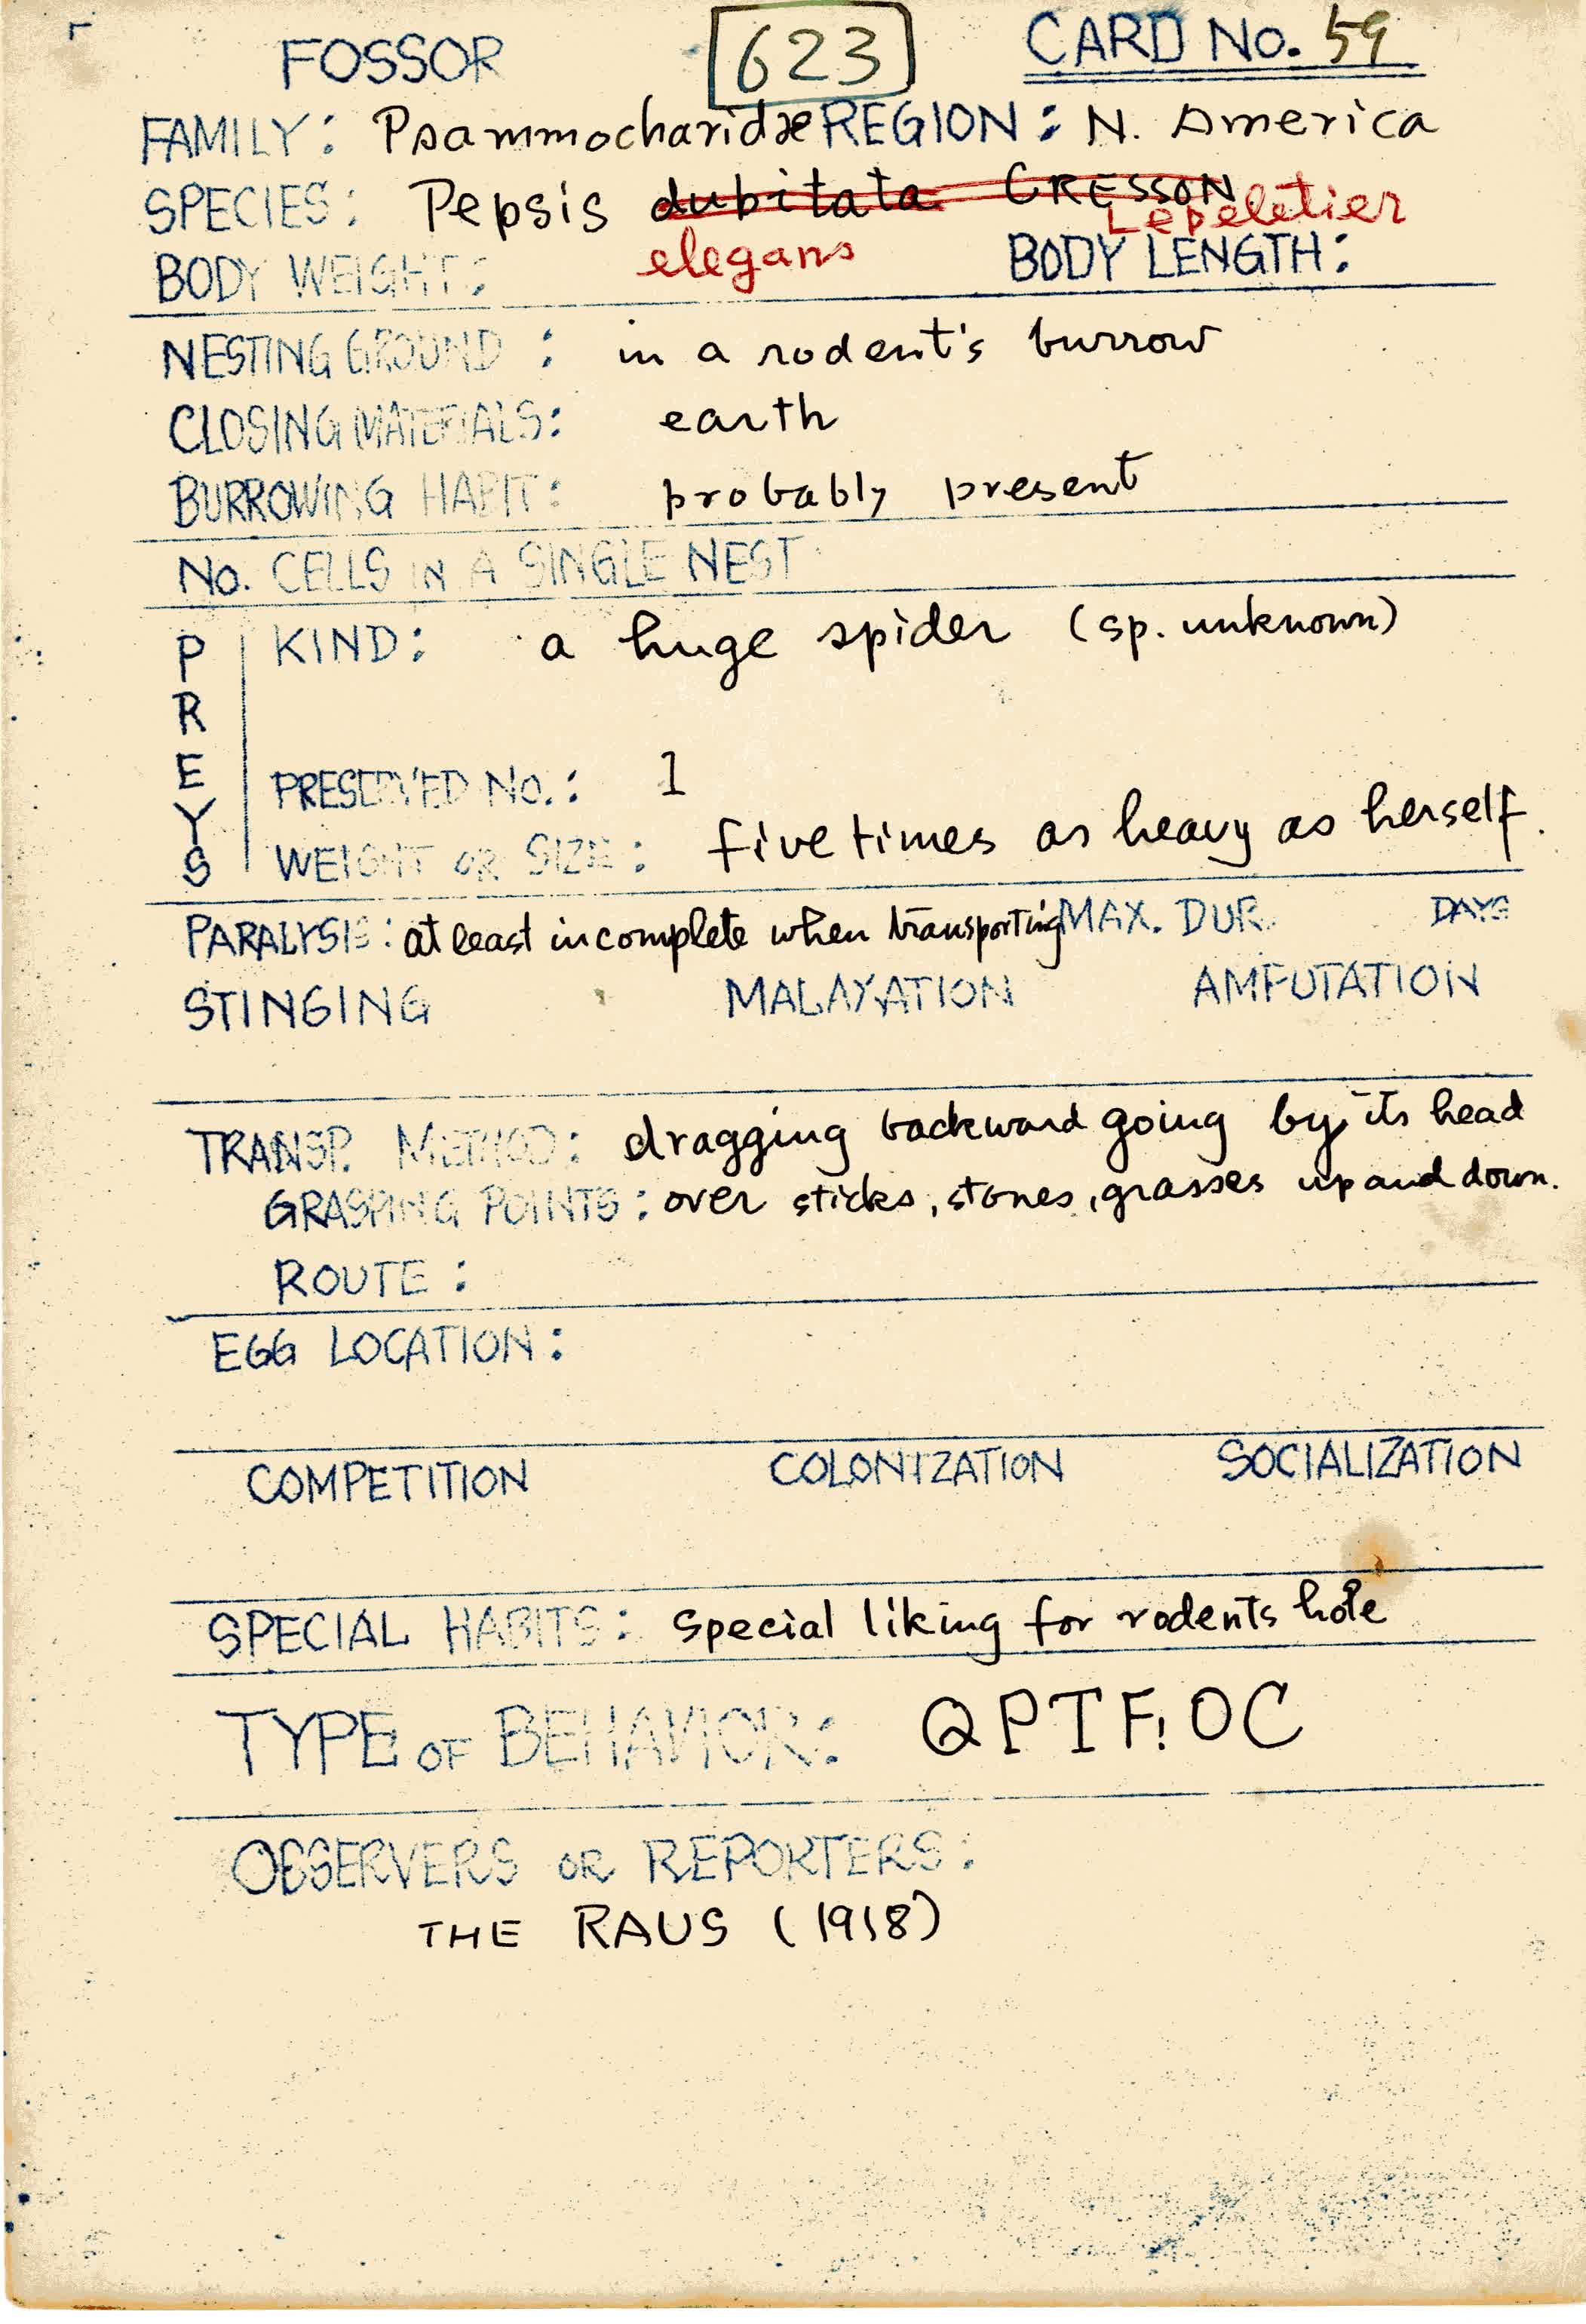 FOSSOR 623 CARD No. 59
FAMILY: Psammocharidæ REGION: N. America
SPECIES: Pepsis dubitata CRESSON Lepeletier
elegans
BODY WEIGHT: BODY LENGTH:
NESTING GROUND: in a rodent's burrow
CLOSING MATERIALS: earth
BURROWING HABIT: probably present
No. CELLS IN A SINGLE NEST
PREYS
KIND: a huge spider (sp. unknown)
PRESERVED No.: 1
WEIGHT OR SIZE: five times as heavy as herself.
PARALYSIS: at least incomplete when transporting MAX. DUR. DAYS
STINGING MALAXATION AMPUTATION
TRANSP. METHOD: dragging backward going by its head
GRASPING POINTS: over sticks, stones, grasses up and down.
ROUTE:
EGG LOCATION:
COMPETITION COLONIZATION SOCIALIZATION
SPECIAL HABITS: special liking for rodents hole
TYPE OF BEHAVIOR: QPTF!OC
OBSERVERS OR REPORTERS:
THE RAUS (1918)